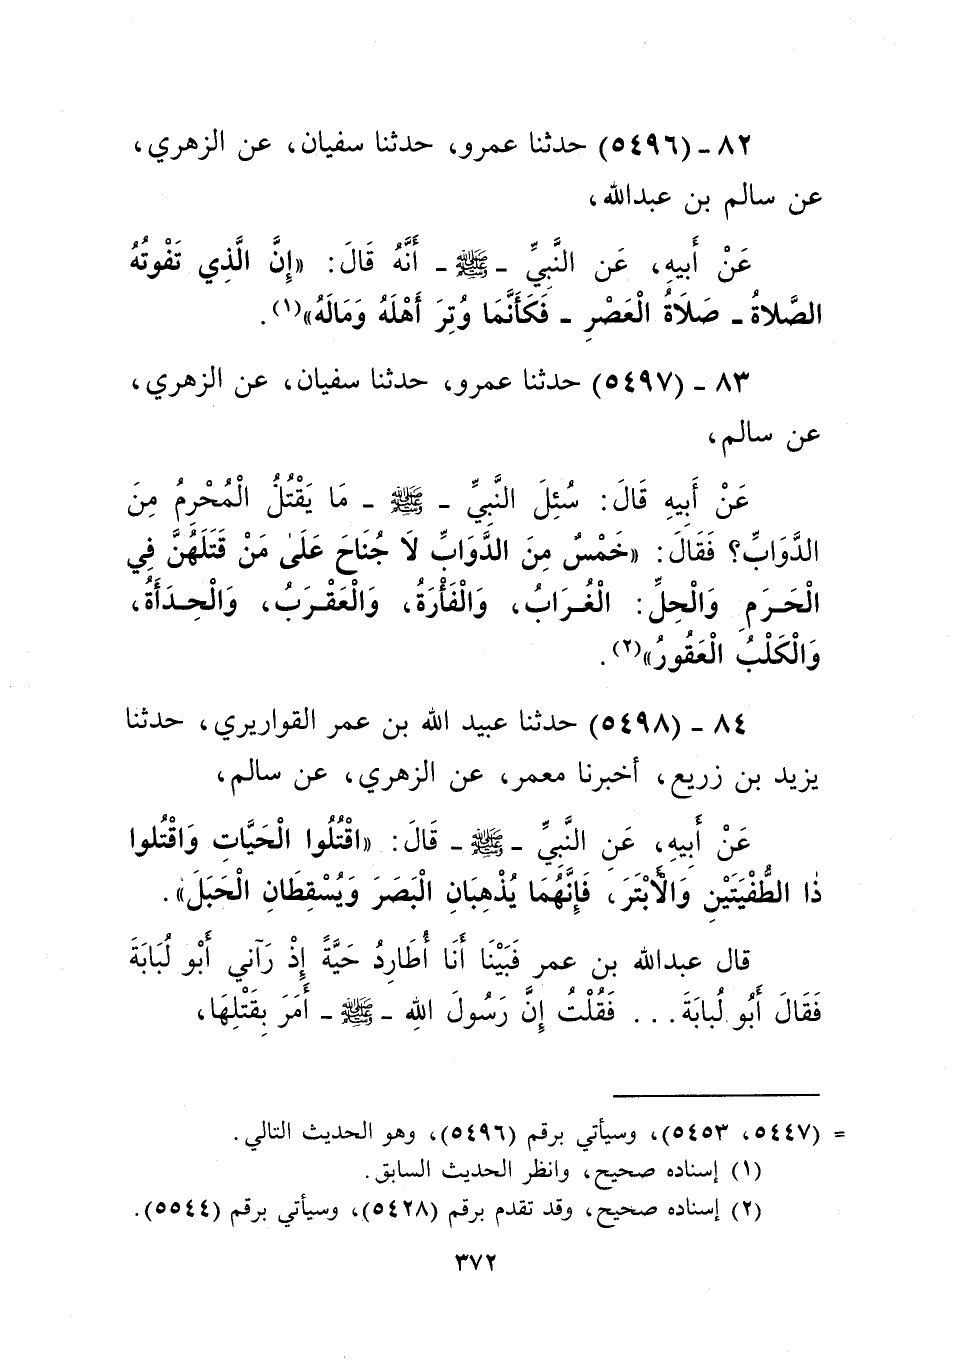 ٨٢ ـ (٥٤٩٦) حدثنا عمرو، حدثنا سفيان، عن الزهري،
عن سالم بن عبدالله،
عَنْ أَبيهِ، عَن النَّبيِّ ـ ﷺ ـ أَنَّهُ قَالَ: «إِنَّ الَّذِي تَفْوتُهُ
الصَّلاةُ ـ صَلَاةُ الْعَصْرِ ـ فَكَأَنَّمَا وُتِرَ أَهْلَهُ وَمَالَهُ»(١).
٨٣ ـ (٥٤٩٧) حدثنا عمرو، حدثنا سفيان، عن الزهري،
عن سالم،
عَنْ أَبِيهِ قَالَ: سُئِلَ النَّبِيِّ ـ ﷺ ـ مَا يَقْتُلُ الْمُحْرِمُ مِنَ
الدَّوَابِّ؟ فَقَالَ: «خَمْسٌ مِنَ الدَّوَابِّ لَا جُنَاحَ عَلَىٰ مَنْ قَتَلَهُنَّ فِي
الْحَرَمِ وَالْحِلِّ: الْغُرَابُ، وَالْفَأْرَةُ، وَالْعَقْرَبُ، وَالْحِدَأَةُ،
وَالْكَلْبُ الْعَقُورُ»(٢).
٨٤ ـ (٥٤٩٨) حدثنا عبيد الله بن عمر القواريري، حدثنا
يزيد بن زريع، أخبرنا معمر، عن الزهري، عن سالم،
عَنْ أَبِيهِ، عَنِ النَّبِيِّ ـ ﷺ ـ قَالَ: «اقْتُلُوا الْحَيَّاتِ وَاقْتُلوا
ذَا الطُّفْيَتَيْنِ وَالْأَبْتَرَ، فَإِنَّهُمَا يُذْهِبَانِ الْبَصَرَ وَيُسْقِطَانِ الْحَبَلَ».
قال عبدالله بن عمر فَبَيْنَا أَنَا أُطَارِدُ حَيَّةً إِذْ رَآني أَبْو لُبَابَةَ
فَقَالَ أَبُو لُبابَةَ. . . فَقُلْتُ إِنَّ رَسُولَ اللهِ ـ ﷺ ـ أَمَرَ بِقَتْلِهَا،
= (٥٤٤٧، ٥٤٥٣)، وسيأتي برقم (٥٤٩٦)، وهو الحديث التالي.
(١) إسناده صحيح، وانظر الحديث السابق.
(٢) إسناده صحيح، وقد تقدم برقم (٥٤٢٨)، وسيأتي برقم (٥٥٤٤).
٣٧٢